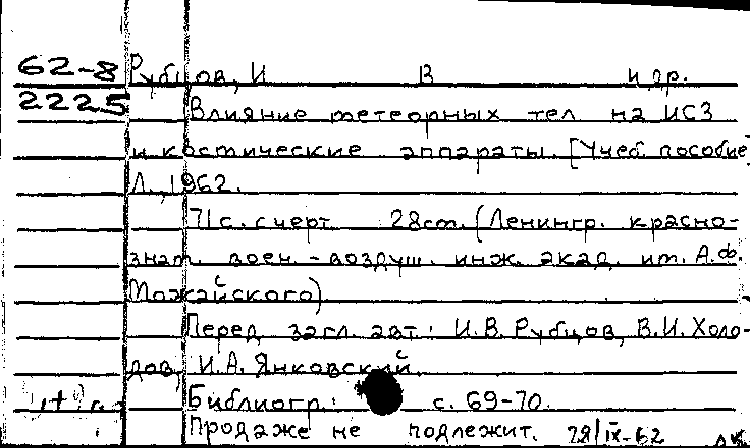 62-8 Рубцов, И В и др.
2225 Влияние метеорных тел на ИСЗ
и космические аппараты. [Учеб. пособие]
Л., 1962.
71 с. с черт. 28 cm. (Ленингр. красно-
знам. воен.-воздуш. инж. акад. им. А.Ф.
Можайского)
Перед загл. авт.: И.В. Рубцов, В.И. Холо-
дов, И.А. Янковский.
Библиогр.: с. 69-70.
Продаже не подлежит. 28/IX-62